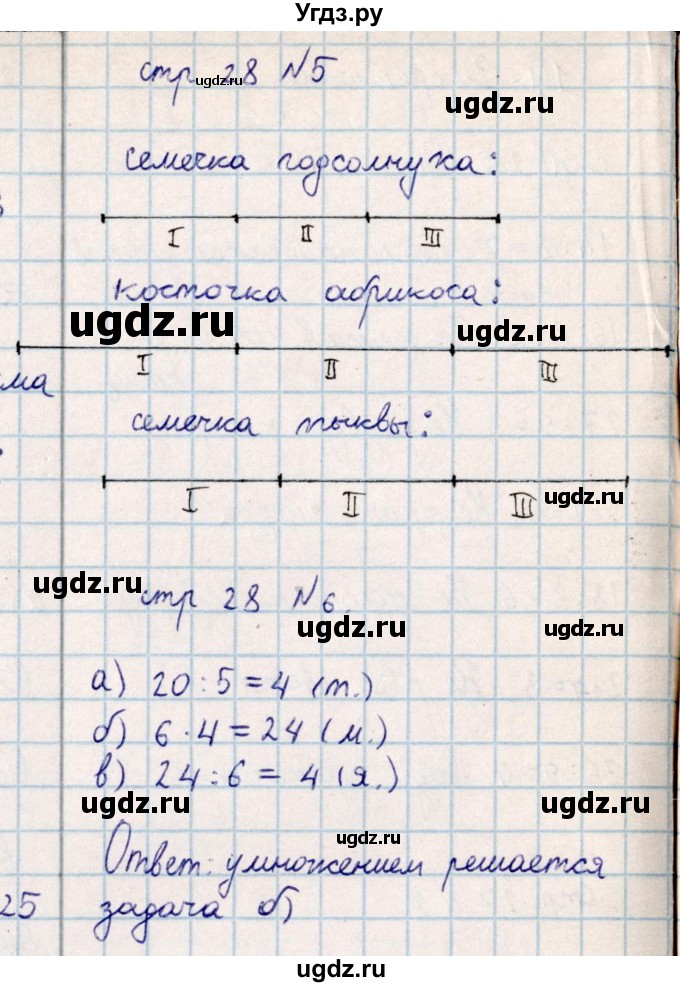 Угдз.ру
стр 28 №5
ugdz.ru
ugdz.ru
семечка подсолнуха:
I II III
косточка абрикоса:
ugdz.ru
ugdz.ru
I II III
ма
семечка тыквы:
I II III
ugdz.ru
ugdz.ru
стр 28 №6.
ugdz.ru
ugdz.ru
а) 20:5=4 (т.)
б) 6·4=24 (м.)
в) 24:6= 4 (я.)
ugdz.ru
ugdz.ru
ugdz.ru
Ответ: умножением решается
25 задача б)
ugdz.ru